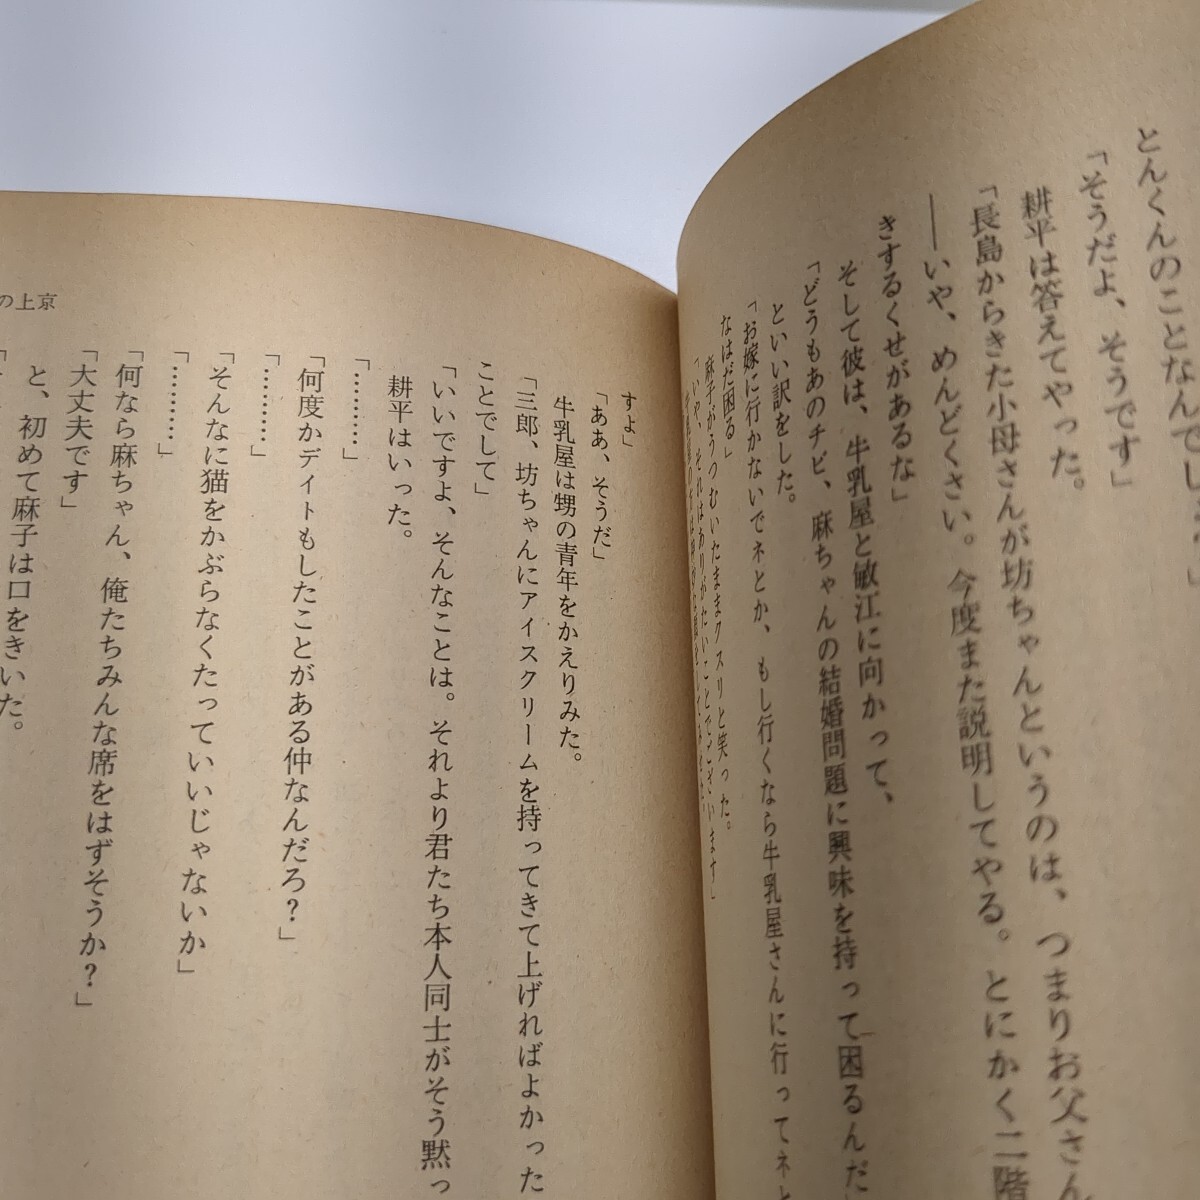 とんくんのことなんでし
「そうだよ、そうです」
耕平は答えてやった。
「長島からきた小母さんが坊ちゃんというのは、つまりお父さん
――いや、めんどくさい。今度また説明してやる。とにかく二階
きするくせがあるな」
そして彼は、牛乳屋と敏江に向かって、
「どうもあのチビ、麻ちゃんの結婚問題に興味を持って困るんだ」
といい訳をした。
「お嫁に行かないでネとか、もし行くなら牛乳屋さんに行ってネと
なはだ困る」
麻子がうつむいたままクスリと笑った。
「いや、それはありがたいことでございます」
すよ」
「ああ、そうだ」
牛乳屋は甥の青年をかえりみた。
「三郎、坊ちゃんにアイスクリームを持ってきて上げればよかった
ことでして」
「いいですよ、そんなことは。それより君たち本人同士がそう黙っ
耕平はいった。
「…………」
「何度かデイトもしたことがある仲なんだろ？」
「…………」
「そんなに猫をかぶらなくたっていいじゃないか」
「…………」
「何なら麻ちゃん、俺たちみんな席をはずそうか？」
「大丈夫です」
と、初めて麻子は口をきいた。
の上京